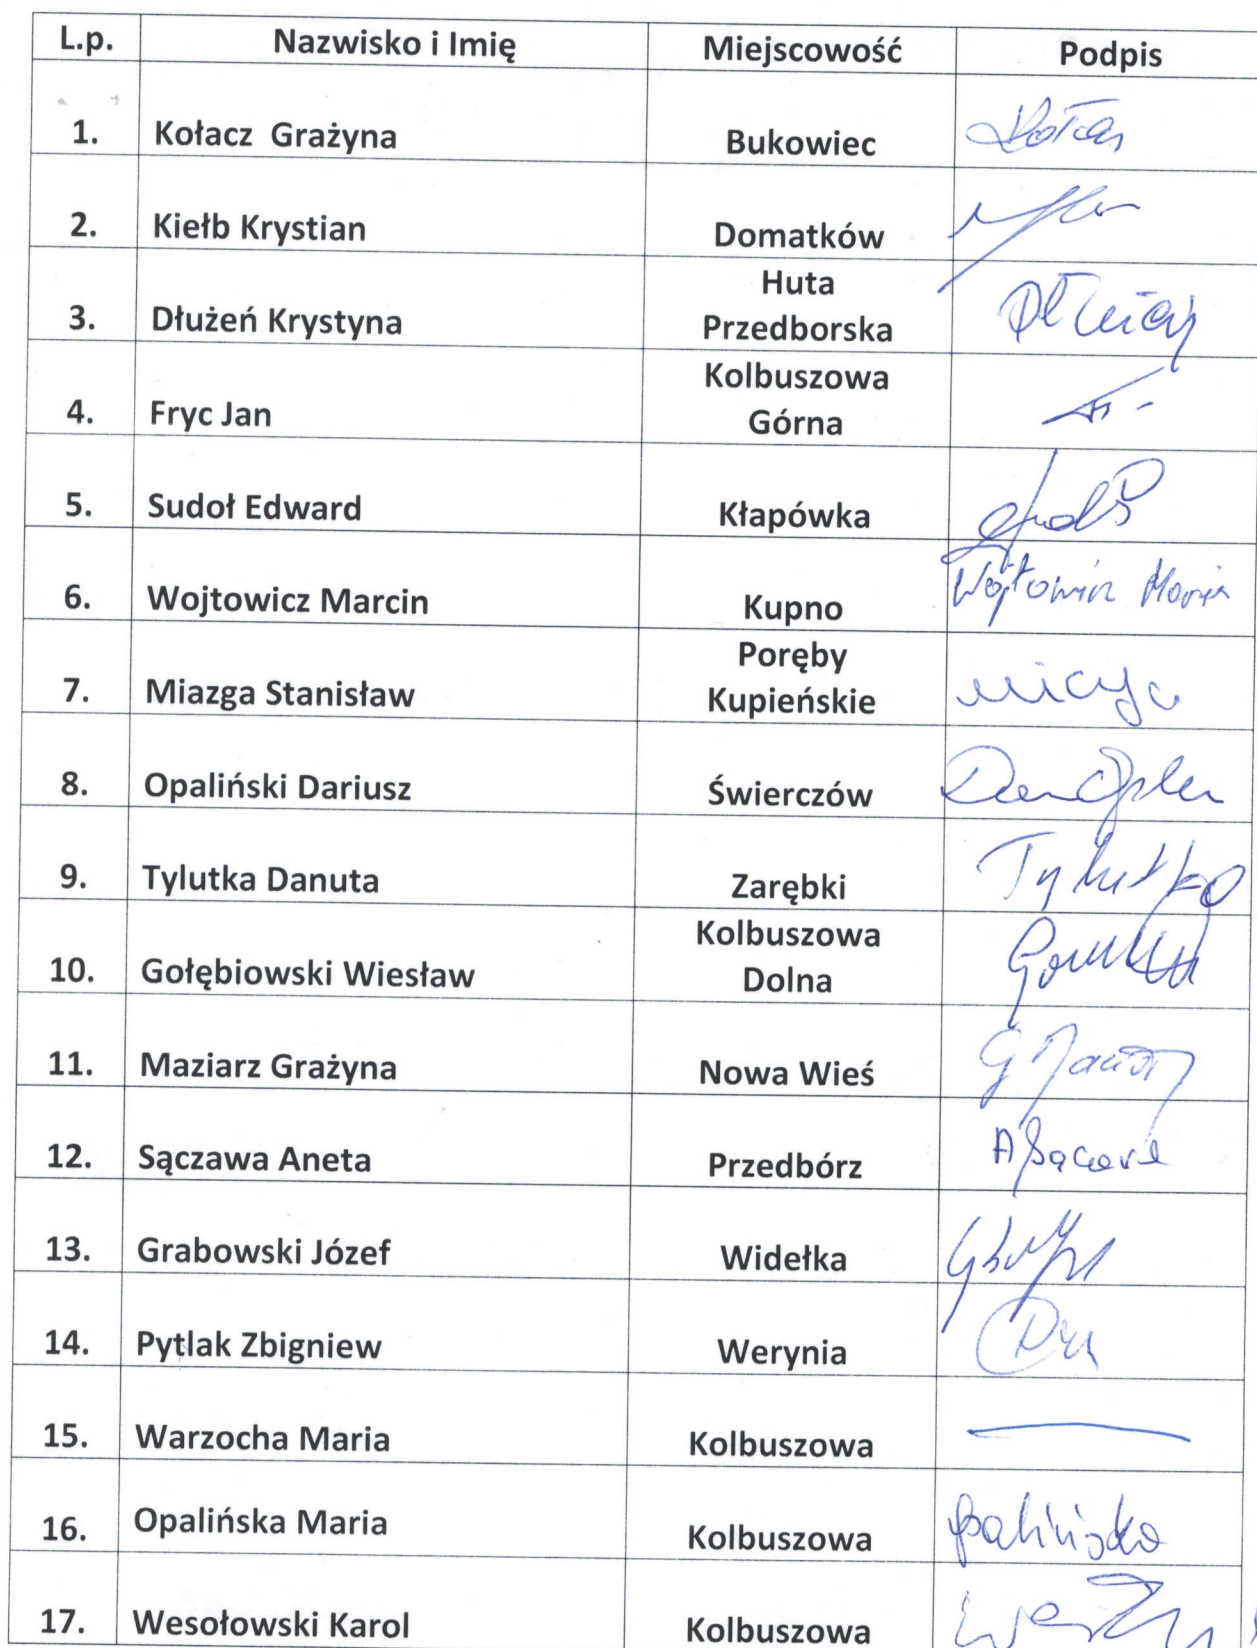 L.p. Nazwisko i Imię Miejscowość Podpis
1. Kołacz Grażyna Bukowiec
2. Kiełb Krystian Domatków
Huta
3. Dłużeń Krystyna Przedborska
Kolbuszowa
4. Fryc Jan Górna
5. Sudoł Edward Kłapówka
6. Wojtowicz Marcin Kupno Wojtowicz Marcin
Poręby
7. Miazga Stanisław Kupieńskie
8. Opaliński Dariusz Świerczów
9. Tylutka Danuta Zarębki Tylutka
Kolbuszowa
10. Gołębiowski Wiesław Dolna
11. Maziarz Grażyna Nowa Wieś
12. Sączawa Aneta Przedbórz
13. Grabowski Józef Widełka
14. Pytlak Zbigniew Werynia
15. Warzocha Maria Kolbuszowa
16. Opalińska Maria Kolbuszowa Opalińska
17. Wesołowski Karol Kolbuszowa